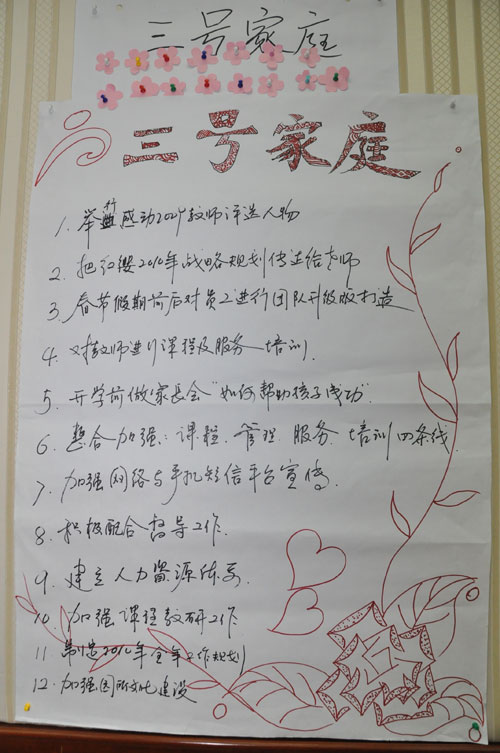 三号家庭
三号家庭
1. 举行感动2029教师评选人物
2. 把红缨2010年战略规划传达给老师
3. 春节假期前后对员工进行团队升级版打造
4. 对教师进行课程及服务培训.
5. 开学前做家长会"如何帮助孩子成功"
6. 整合加强:课程.管理.服务.培训四条线.
7. 加强网络与手机短信平台宣传.
8. 积极配合督导工作.
9. 建立人力资源体系
10. 加强课程教研工作
11. 制定2010年全年工作规划
12. 加强园所文化建设